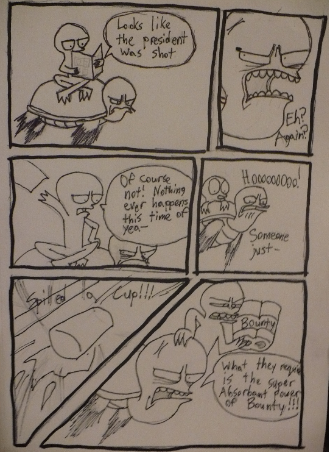 Looks like
the president
was shot
Eh?
Again?
Of course
not! Nothing
ever happens
this time of
yea-
Hooooooooo!
Someone
just-
Spilled a
Cup!!!
Bounty
What they require
is the super
Absorbant power
of Bounty!!!